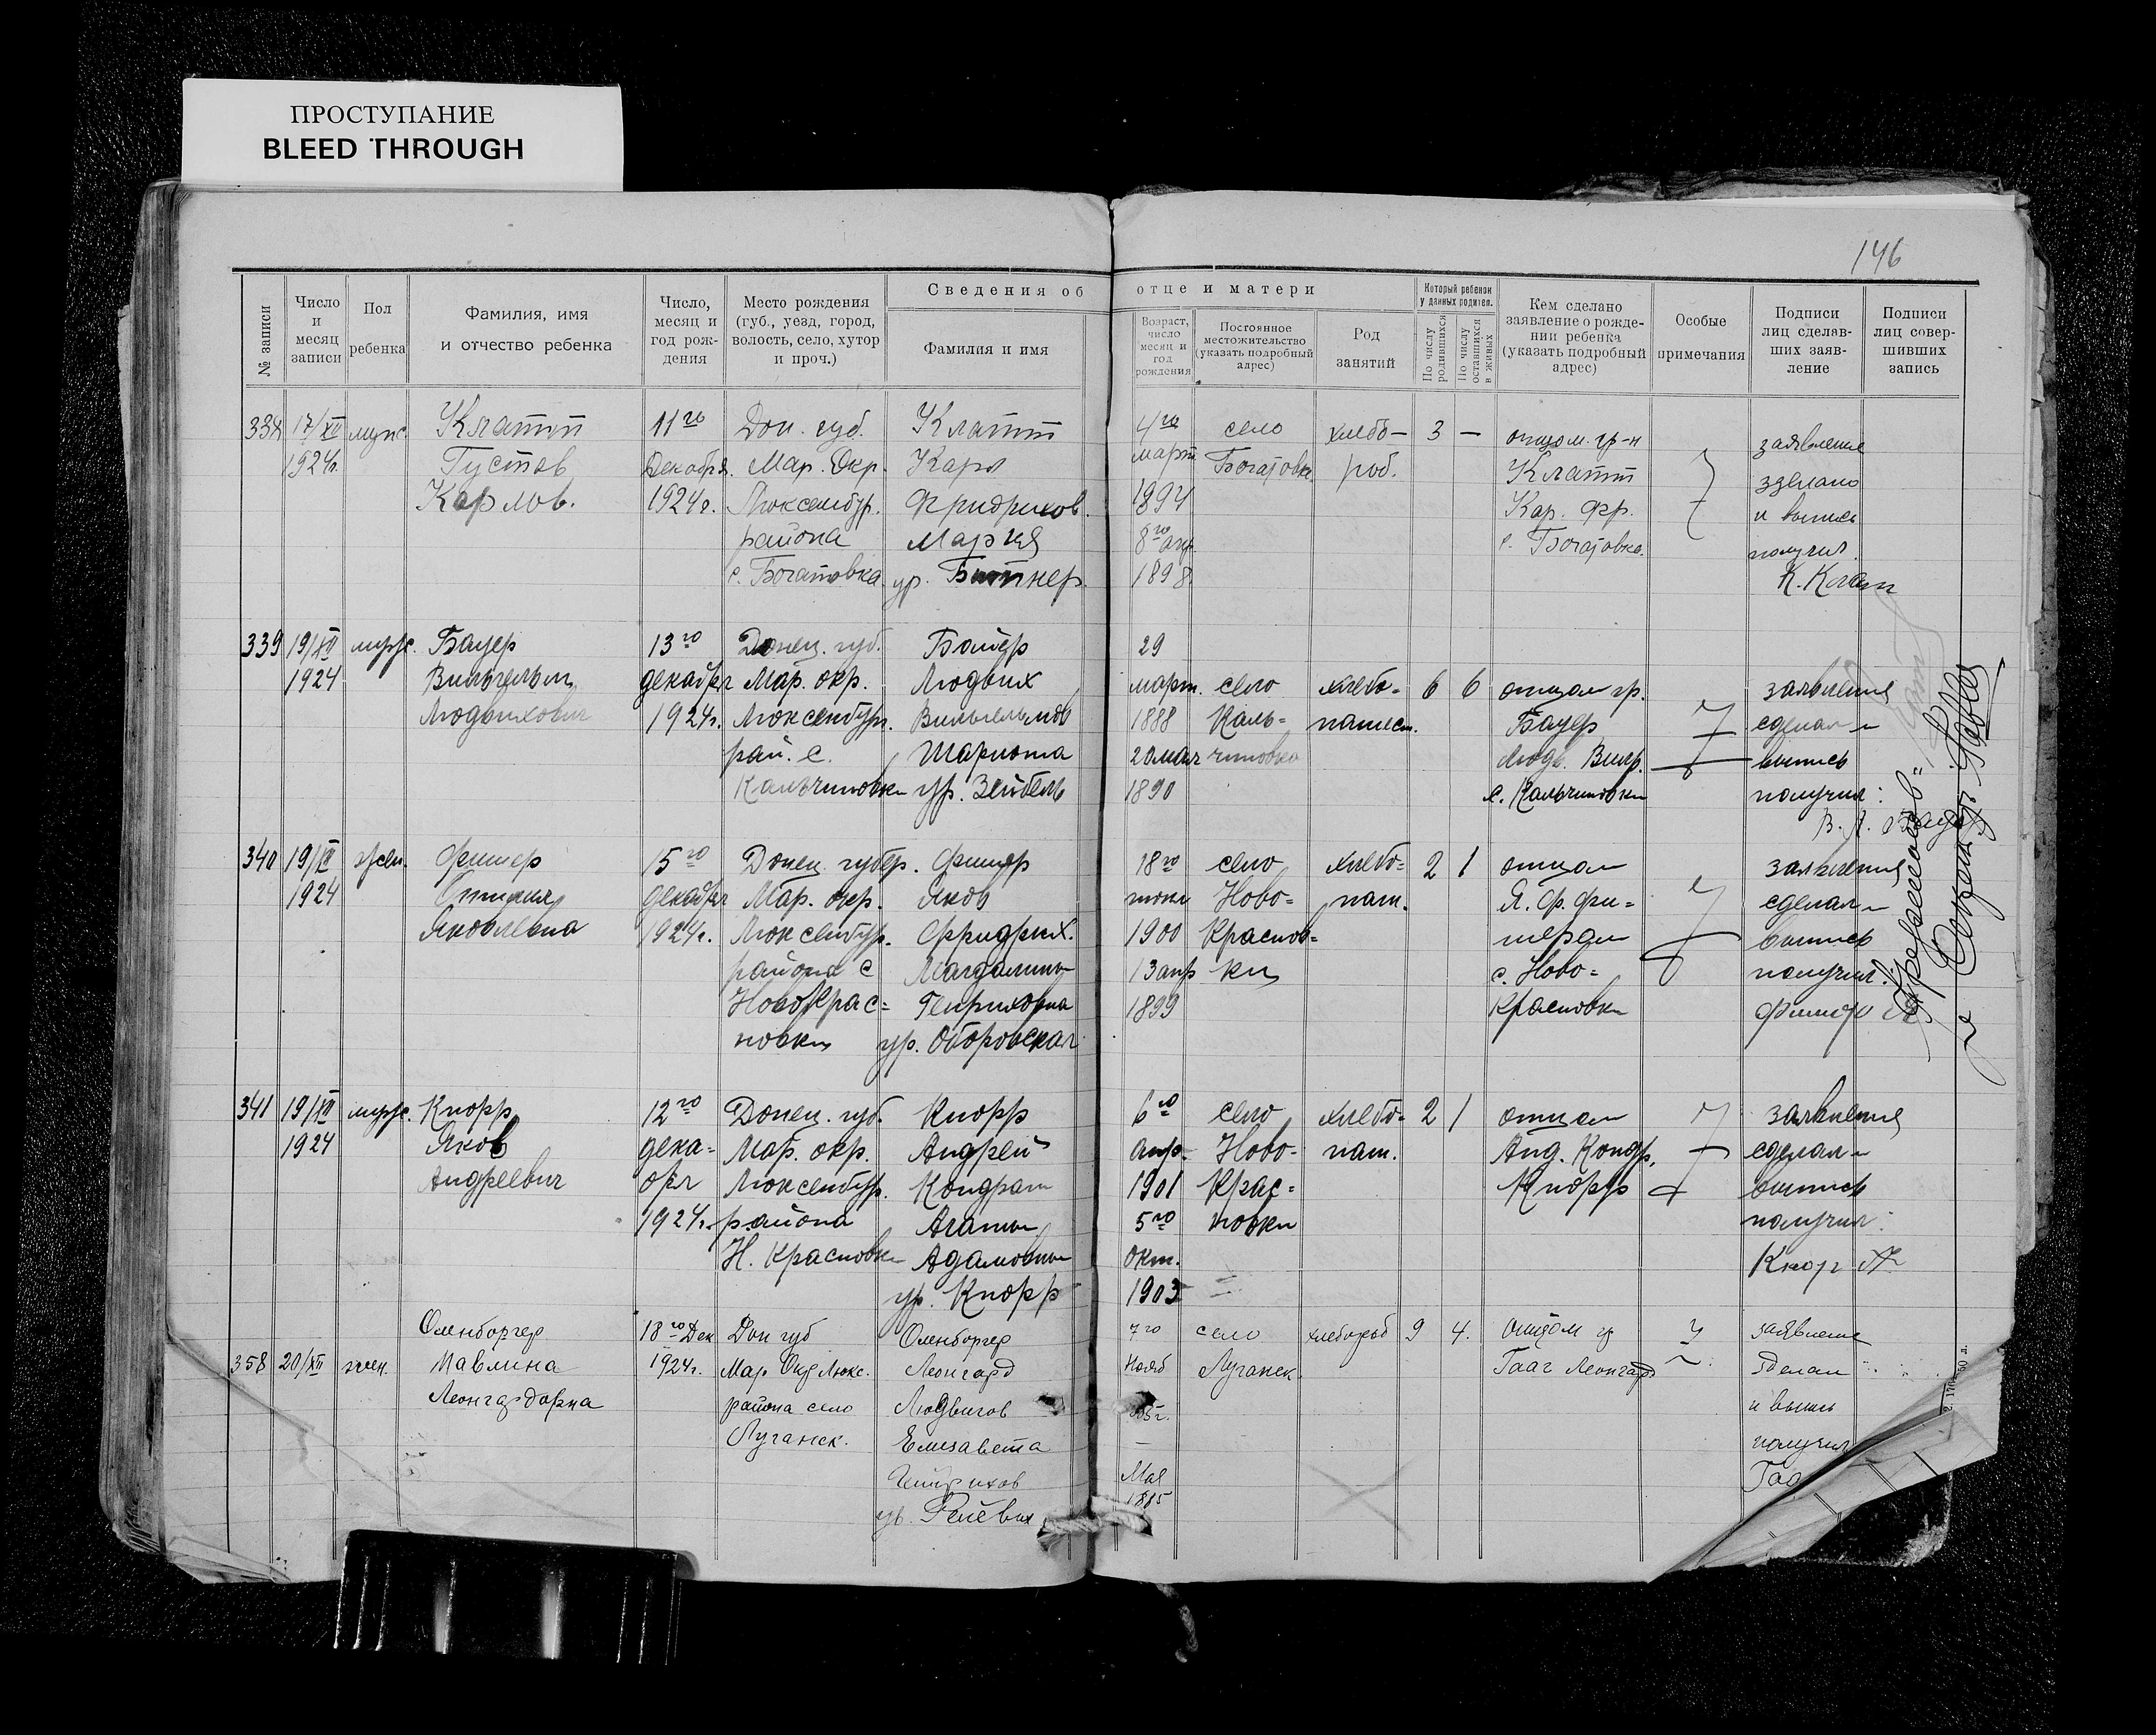 ПРОСТУПАНИЕ
BLEED THROUGH
146
№ записи
Число и месяц записи
Пол ребенка
Фамилия, имя и отчество ребенка
Число, месяц и год рождения
Место рождения (губ., уезд, город, волость, село, хутор и проч.)
Сведения об отце и матери
Фамилия и имя
Возраст, число месяц и год рождения
Постоянное местожительство (указать подробный адрес)
Род занятий
Который ребенок у данных родител.
По числу родившихся
По числу оставшихся в живых
Кем сделано заявление о рождении ребенка (указать подробный адрес)
Особые примечания
Подписи лиц сделавших заявление
Подписи лиц совершивших запись
338 17/XII муж. Клатт 11го Дон. губ. Клатт 4го село хлебо- 3 — отцом гр-н заявление
1924г. Густав Декабря Мар. Окр. Карл март Богатовка роб. Клатт зделано
Карлов. 1924г. Люксембур. Фридрихов. 1894 Кар. Фр. и выпись
района Мария 8го апр с. Богатовка. получил.
с. Богатовка ур. Битнер 1898 К. Клатт
339 19/XII муж. Бауер 13го Донец. губ. Бауер 29
1924 Вильгельм декабря Мар. окр. Людвих март. село хлебо- 6 6 отцом гр. заявления
Людвихович 1924г. Люксембург. Вильгельмов 1888 Каль- пашест. Бауер сделал и
рай. с. Шарлота 20 мая чиновка Людв. Вильг. выпись
Кальчиновки ур. Зейбель 1890 с. Кальчиновки получил:
340 19/XII жен. Фишер 15го Донец. губер. Фишер 18го село хлебо- 2 1 отцом заявления
1924 декабря Мар. окр. Яков июня Ново- паш. Я. Ф. Фи- сделал и
Яковлевна 1924г. Люксембур. Фридрих. 1900 Краснов- шером выпись
района с Магдалина 13 апр ка с. Ново- получил:
Новокрас- Генриховна 1899 Красновки Фишер
новка ур. Оборовская
341 19/XII муж. Кнорр 12го Донец. губ. Кнорр 6го село хлебо- 2 1 отцом заявления
1924 Яков дека- Мар. окр. Андрей апр. Ново- паш. Анд. Кондр. сделал и
Андреевич бря Люксембур. Кондрат 1901 Крас- Кнорр выпись
1924г. района Агата 5го новки получил:
Н. Красновка Адамовна окт. Кнорр
ур. Кнорр 1903
Оленборгер 18го Дек Дон губ Оленборгер 7го село хлебороб 9 4. Отцом гр заявление
358 20/XII жен. Мавлина 1924г. Мар Окр Люкс. Леонгард Нояб Луганск. Гааг Леонгард зделал
Леонгардовна района село Людвигов и выпись
Луганск. Елизавета — получил
Мая
1885